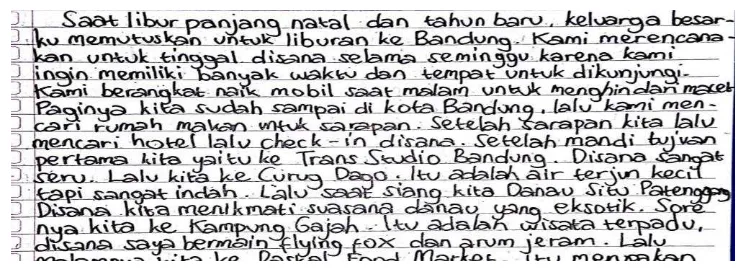 Saat libur panjang natal dan tahun baru, keluarga besar-
ku memutuskan untuk liburan ke Bandung. Kami merencana-
kan untuk tinggal disana selama seminggu karena kami
ingin memiliki banyak waktu dan tempat untuk dikunjungi.
Kami berangkat naik mobil saat malam untuk menghindari macet
Paginya kita sudah sampai di kota Bandung, lalu kami men-
cari rumah makan untuk sarapan. Setelah sarapan kita lalu
mencari hotel lalu check-in disana. Setelah mandi tujuan
pertama kita yaitu ke Trans Studio Bandung. Disana sangat
seru. Lalu kita ke Curug Dago. Itu adalah air terjun kecil
tapi sangat indah. Lalu saat siang kita Danau Situ Patenggang
Disana kita menikmati suasana danau yang eksotik. Sore
nya kita ke Kampung Gajah. Itu adalah wisata terpadu,
disana saya bermain flying fox dan arum jeram. Lalu
malamnya kita ke Paskal Food Market. Itu merupakan